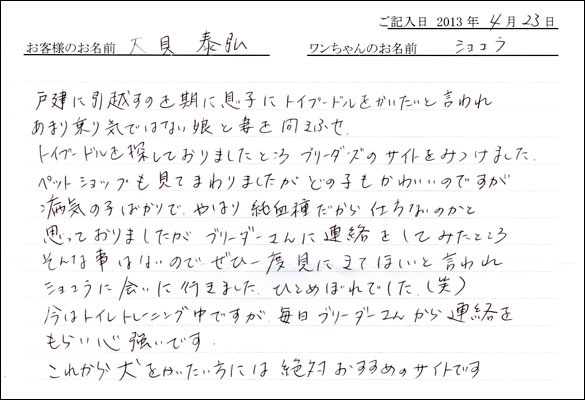 ご記入日 2013 年 4 月 23 日
お客様のお名前 天貝 泰弘 ワンちゃんのお名前 ショコラ
戸建に引越すのを期に息子にトイプードルをかいたいと言われ
あまり乗り気ではない娘と妻を同ませ
トイプードルを探しておりましたところ ブリーダーズのサイトをみつけました.
ペットショップも見てまわりましたが どの子もかわいいのですが
病気の子ばかりで、やはり 純血種だから 仕方ないのかと
思っておりましたが ブリーダーさんに連絡をしてみたところ
そんな事はないので ぜひ一度見にきてほしいと 言われ
ショコラに会いに行きました. ひとめぼれでした. (笑)
今はトイレトレーニング中ですが、毎日ブリーダーさんから連絡を
もらい心強いです.
これから 犬をかいたい方には 絶対おすすめのサイトです